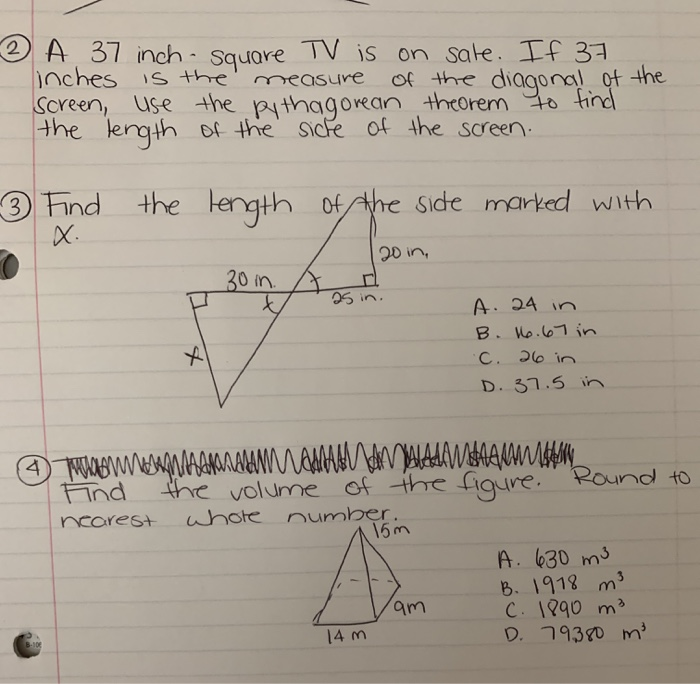 2 A 37 inch - square TV is on sale. If 37
inches is the measure of the diagonal of the
screen, use the pythagorean theorem to find
the length of the side of the screen.
3 Find the length of the side marked with
x.
20 in.
30 in.
25 in.
x
A. 24 in
B. 16.67 in
C. 26 in
D. 37.5 in
4
Find the volume of the figure. Round to
nearest whole number.
15m
9m
14 m
A. 630 m³
B. 1978 m³
C. 1890 m³
D. 79380 m³